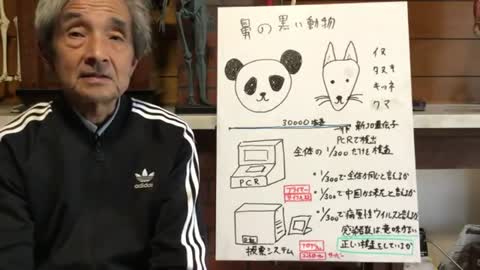 鼻の黒い動物
イヌ
タヌキ
キツネ
クマ
30000塩基
新コロ遺伝子
PCRで検出
全体の1/300だけを検査
PCR
プライマー
・1/300で全体が同じと言えるか
・1/300で中国から来たと言えるか
・1/300で病原性ウイルスと言えるか
感染数は意味がない
正しい検査をしているか
検索システム
adidas